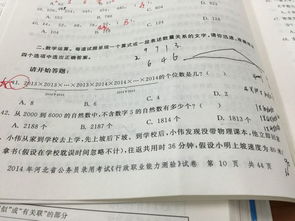 二、数学运算。每道试题呈现一个算式或一段表述数量关系的文字，请你迅速、
四个选项中选出正确答案。
请开始答题：
2 9 7 1 3
2 6 4 6
41. 2013×2013×…×2013×2014×2014×…×2014的个位数是几？（ ）
A. 8 B. 6 C. 4 D. 2
42. 从 2000 到 6000 的自然数中，不含数字 5 的自然数有多少个？（ ）
A. 2188 个 B. 2187 个 C. 1814 个 D. 1813 个
小伟从家到学校去上学，先上坡后下坡，到学校后，小伟发现没带物理课本，他立即回家
拿书（假设在学校耽误时间忽略不计），往返共用时 36 分钟，假设小明上坡速度为 80 米
2014 年河北省公务员录用考试《行政职业能力测验》试卷 第 10 页 共 44 页
似"或"有关联"的部分